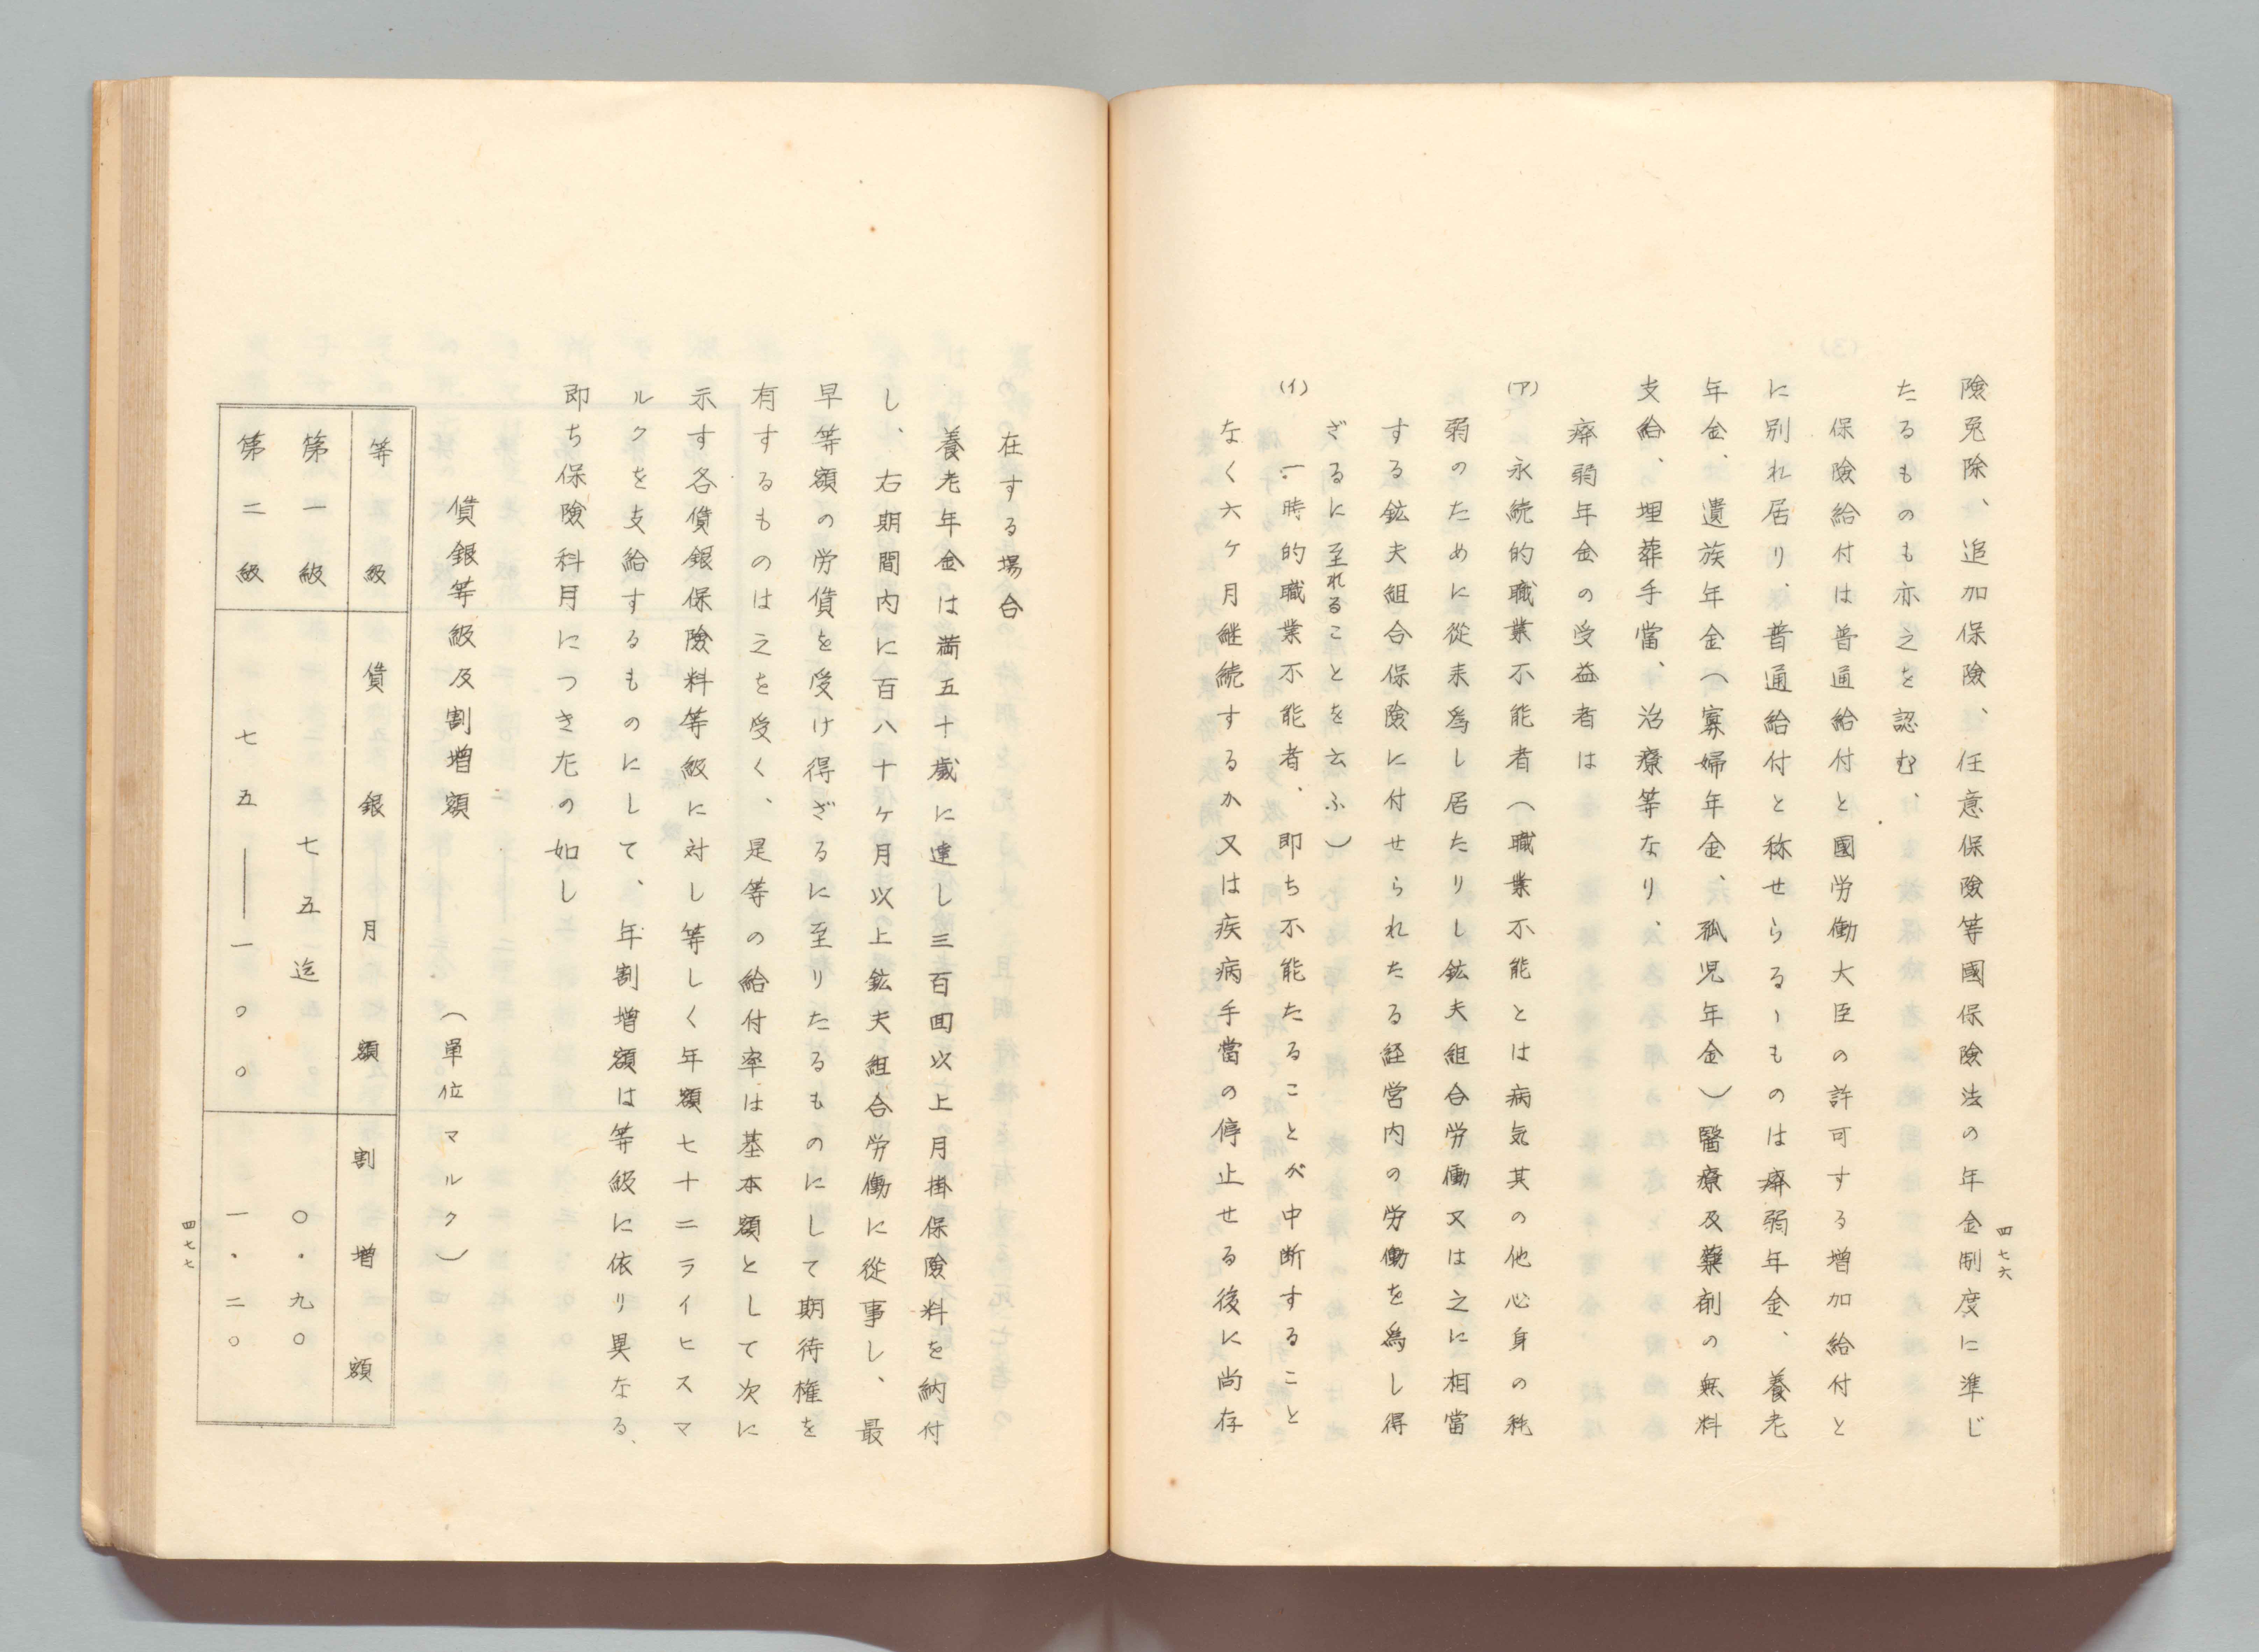 四七六
險免除、追加保險、任意保險等國保險法の年金制度に準じ
たるものも亦之を認む、
保險給付は普通給付と國労働大臣の許可する増加給付と
に別れ居り、普通給付と称せらるヽものは癈弱年金、養老
年金、遺族年金（寡婦年金、孤児年金）醫療及藥剤の無料
支給、埋葬手當、治療等なり、
癈弱年金の受益者は
(ア)永続的職業不能者（職業不能とは病気其の他心身の耗
弱のために從来爲し居たりし鉱夫組合労働又は之に相當
する鉱夫組合保險に付せられたる経営内の労働を爲し得
ざるに至れることを云ふ）
(イ)一時的職業不能者、即ち不能たることが中断すること
なく六ヶ月継続するか又は疾病手當の停止せる後に尚存
在する場合
養老年金は満五十歳に達し三百回以上月掛保險料を納付
し、右期間内に百八十ヶ月以上鉱夫組合労働に從事し、最
早等額の労賃を受け得ざるに至りたるものにして期待権を
有するものは之を受く、是等の給付率は基本額として次に
示す各賃銀保險料等級に対し等しく年額七十二ライヒスマ
ルクを支給するものにして、年割増額は等級に依り異なる、
即ち保險料月につき左の如し
賃銀等級及割増額（單位マルク）
等級 賃銀月額 割増額
第一級 七五迄 〇・九〇
第二級 七五――一〇〇 一・二〇
四七七